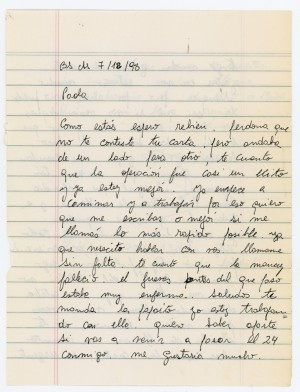 Bs As 7/12/98
Paola
Como estás espero rebien, perdona que
no te conteste tu carta, pero andaba
de un lado para otro, te cuento
que la operación fue casi un exito
y ya estoy mejor. ya empece a
caminar y a trabajar por eso quiero
que me escribas o mejor si me
llamás lo más rapido posible ya
que nescito hablar con vos llamame
sin falta, te cuento que la
fallecio el jueves antes del que paso
estaba muy enfermo. saludos te
manda tu papcito yo estoy trabajan
do con ello quiero saber aparte
si vas a venir a pasar el 24
conmigo, me gustaria mucho.